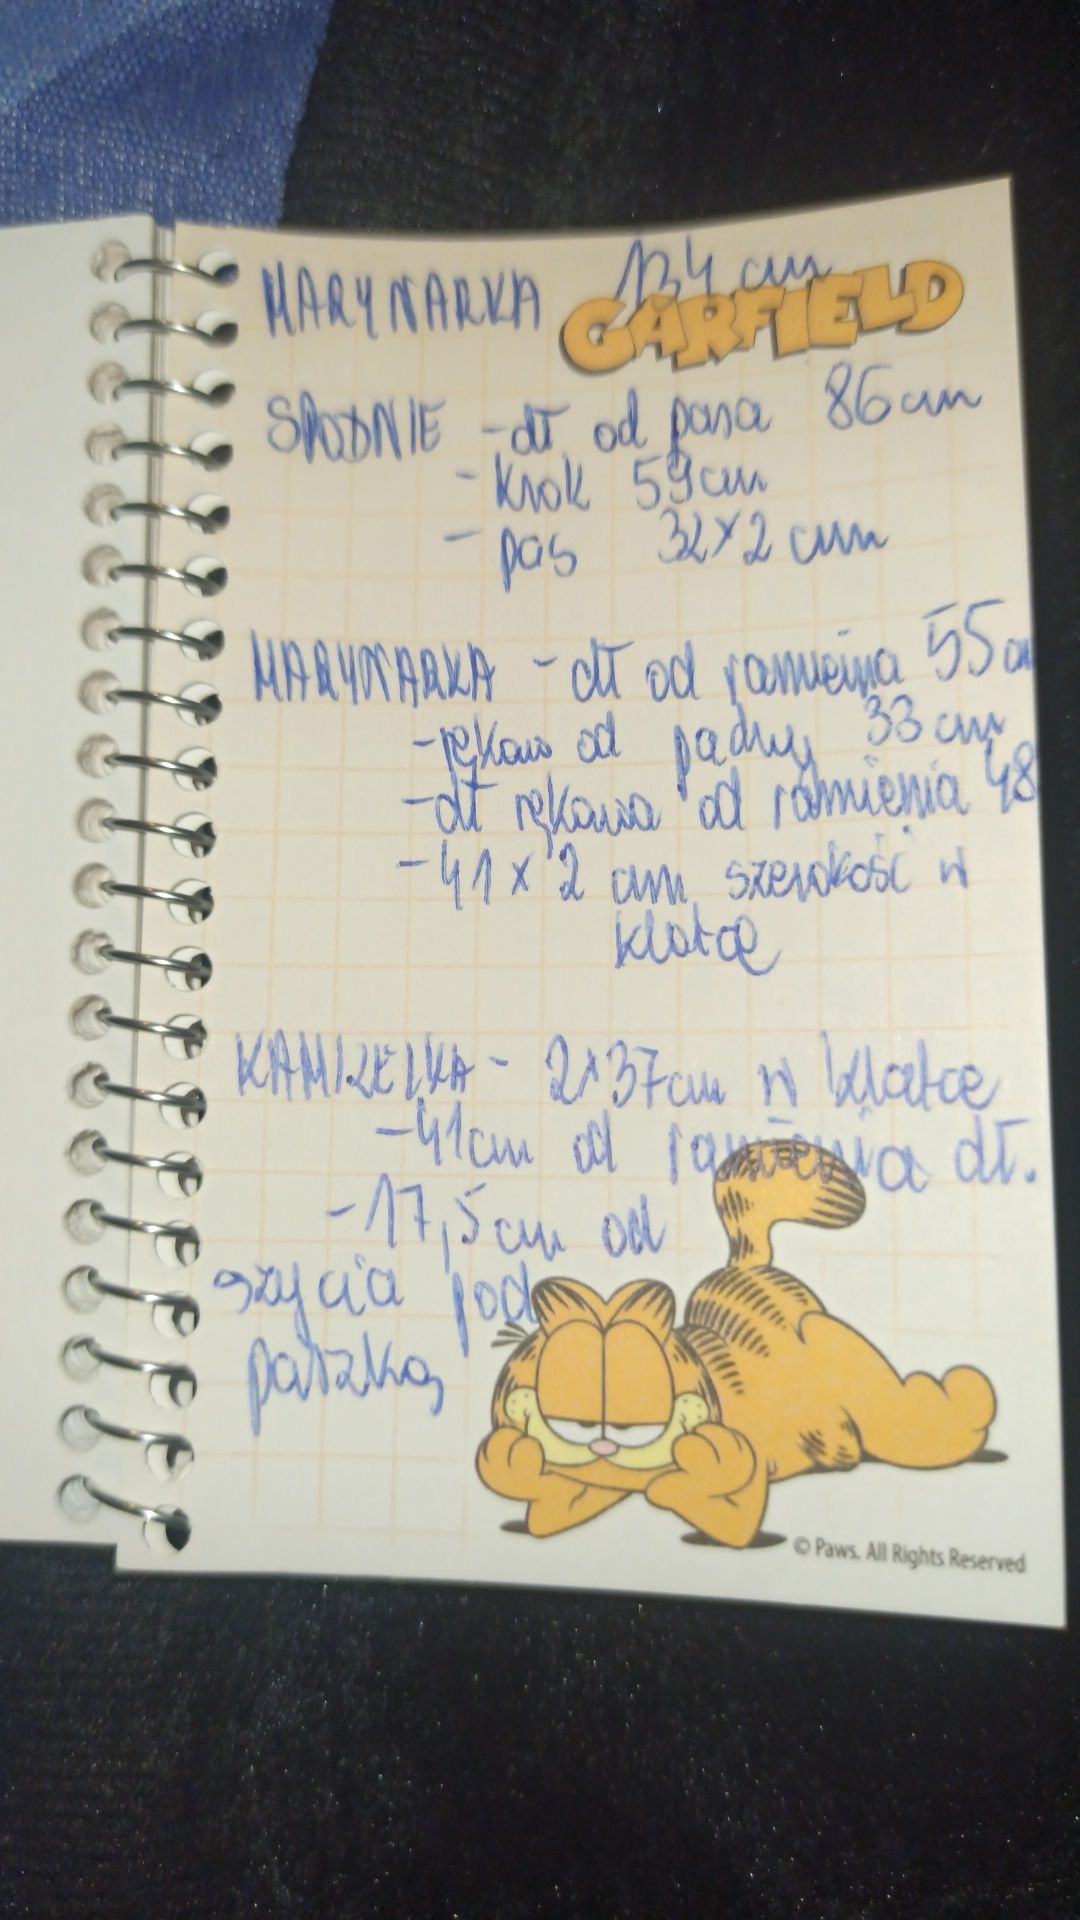 MARYNARKA 134 cm
GARFIELD
SPODNIE - dł od pasa 86cm
- krok 59cm
- pas 32x2 cm
MARYNARKA - dł od ramienia 55 cm
- rękaw od pachy 33 cm
- dł rękawa od ramienia 48
- 41 x 2 cm szerokość w
klatce
KAMIZELKA - 2x37cm w klatce
- 41cm od ramienia dł.
- 17,5cm od
szycia pod
paszką
© Paws. All Rights Reserved